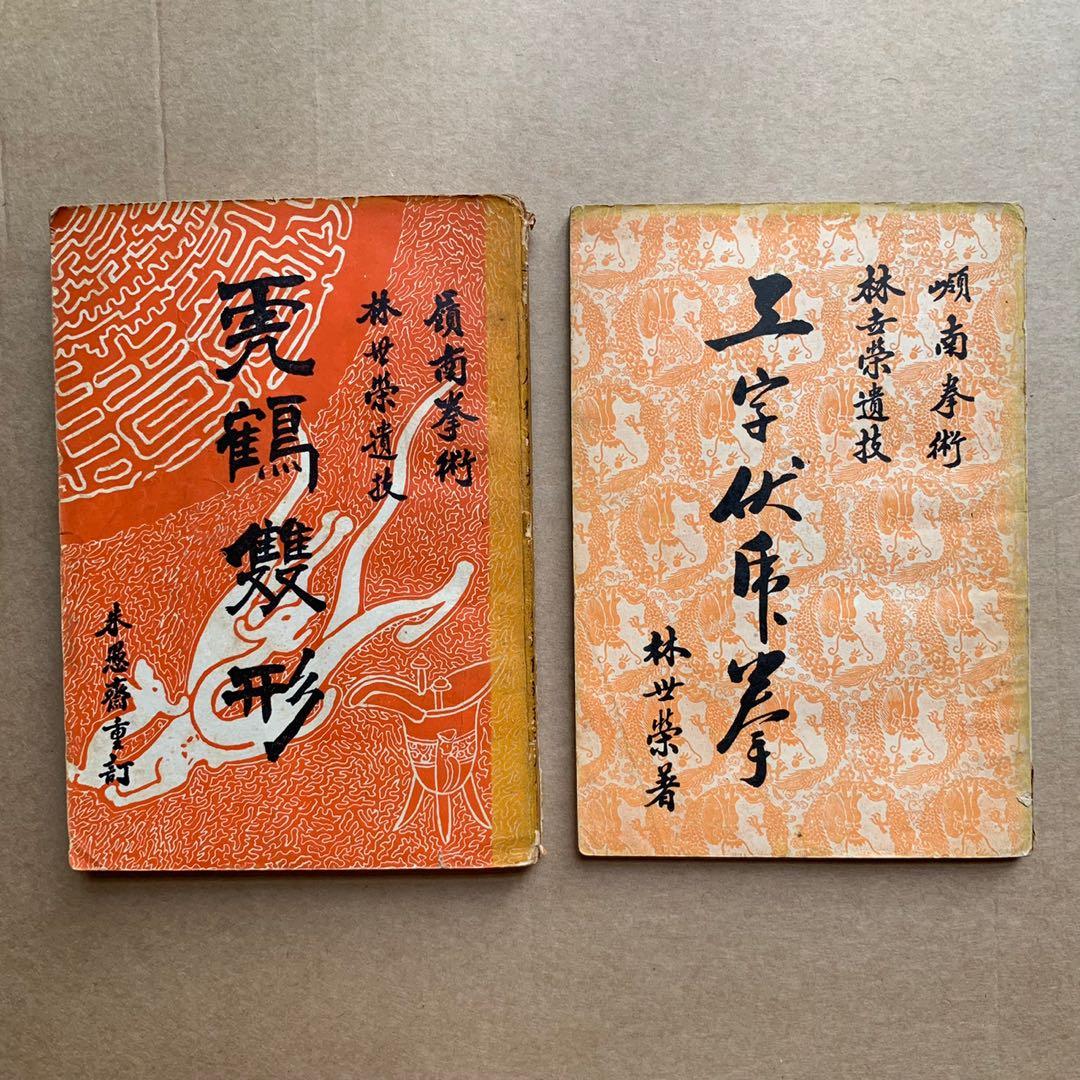 嶺南拳術
林世榮遺技
虎鶴雙形
朱愚齋重訂
嶺南拳術
林世榮遺技
工字伏虎拳
林世榮著